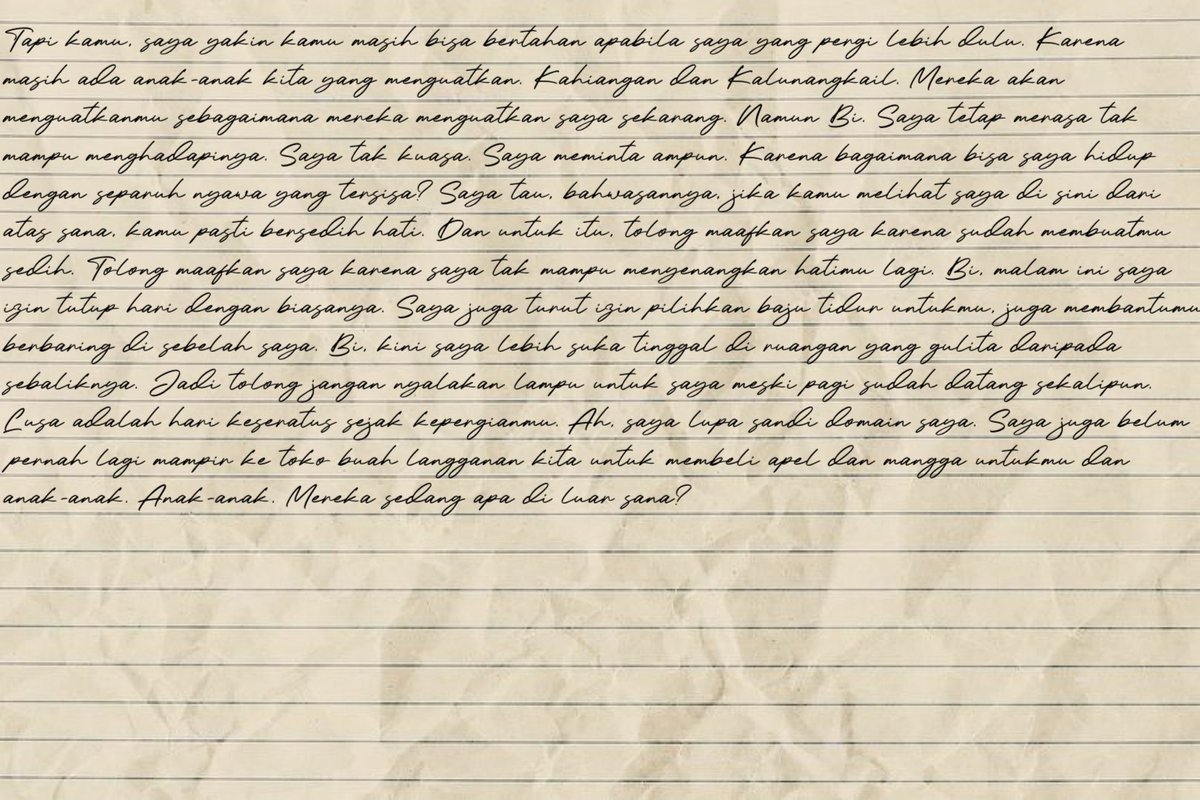 Tapi kamu, saya yakin kamu masih bisa bertahan apabila saya yang pergi lebih dulu. Karena
masih ada anak-anak kita yang menguatkan. Kahiangan dan Kalunangkail. Mereka akan
menguatkanmu sebagaimana mereka menguatkan saya sekarang. Namun Bi. Saya tetap merasa tak
mampu menghadapinya. Saya tak kuasa. Saya meminta ampun. Karena bagaimana bisa saya hidup
dengan separuh nyawa yang tersisa? Saya tau, bahwasannya, jika kamu melihat saya di sini dari
atas sana, kamu pasti bersedih hati. Dan untuk itu, tolong maafkan saya karena sudah membuatmu
sedih. Tolong maafkan saya karena saya tak mampu menyenangkan hatimu lagi. Bi, malam ini saya
izin tutup hari dengan biasanya. Saya juga turut izin pilihkan baju tidur untukmu, juga membantumu
berbaring di sebelah saya. Bi, kini saya lebih suka tinggal di ruangan yang gulita daripada
sebaliknya. Jadi tolong jangan nyalakan lampu untuk saya meski pagi sudah datang sekalipun.
Lusa adalah hari keseratus sejak kepergianmu. Ah, saya lupa sandi domain saya. Saya juga belum
pernah lagi mampir ke toko buah langganan kita untuk membeli apel dan mangga untukmu dan
anak-anak. Anak-anak. Mereka sedang apa di luar sana?